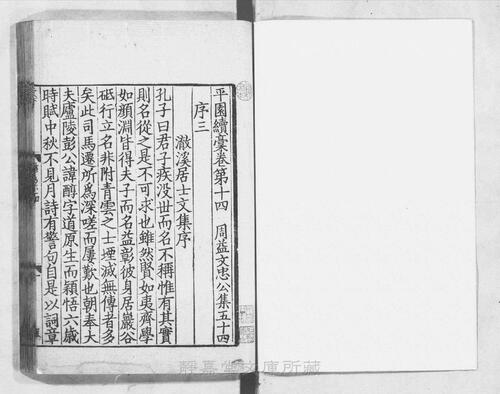 平園續稾卷第十四　周益文忠公集五十四
序三
澂溪居士文集序
孔子曰君子疾没世而名不稱惟有其實
則名從之是不可求也雖然賢如夷齊學
如顔淵皆得夫子而名益彰彼身居巖谷
砥行立名非附青雲之士堙滅無傳者多
矣此司馬遷所爲深嗟而屢歎也朝奉大
夫廬陵彭公諱醇字道原生而穎悟六歲
時賦中秋不見月詩有警句自是以詞章
靜嘉堂文庫所藏